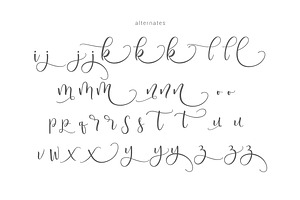 alternates
i j j j k k k k l l l
m m m n n n o o
p p q r r s s t t t u u
v w x x y y y z z z